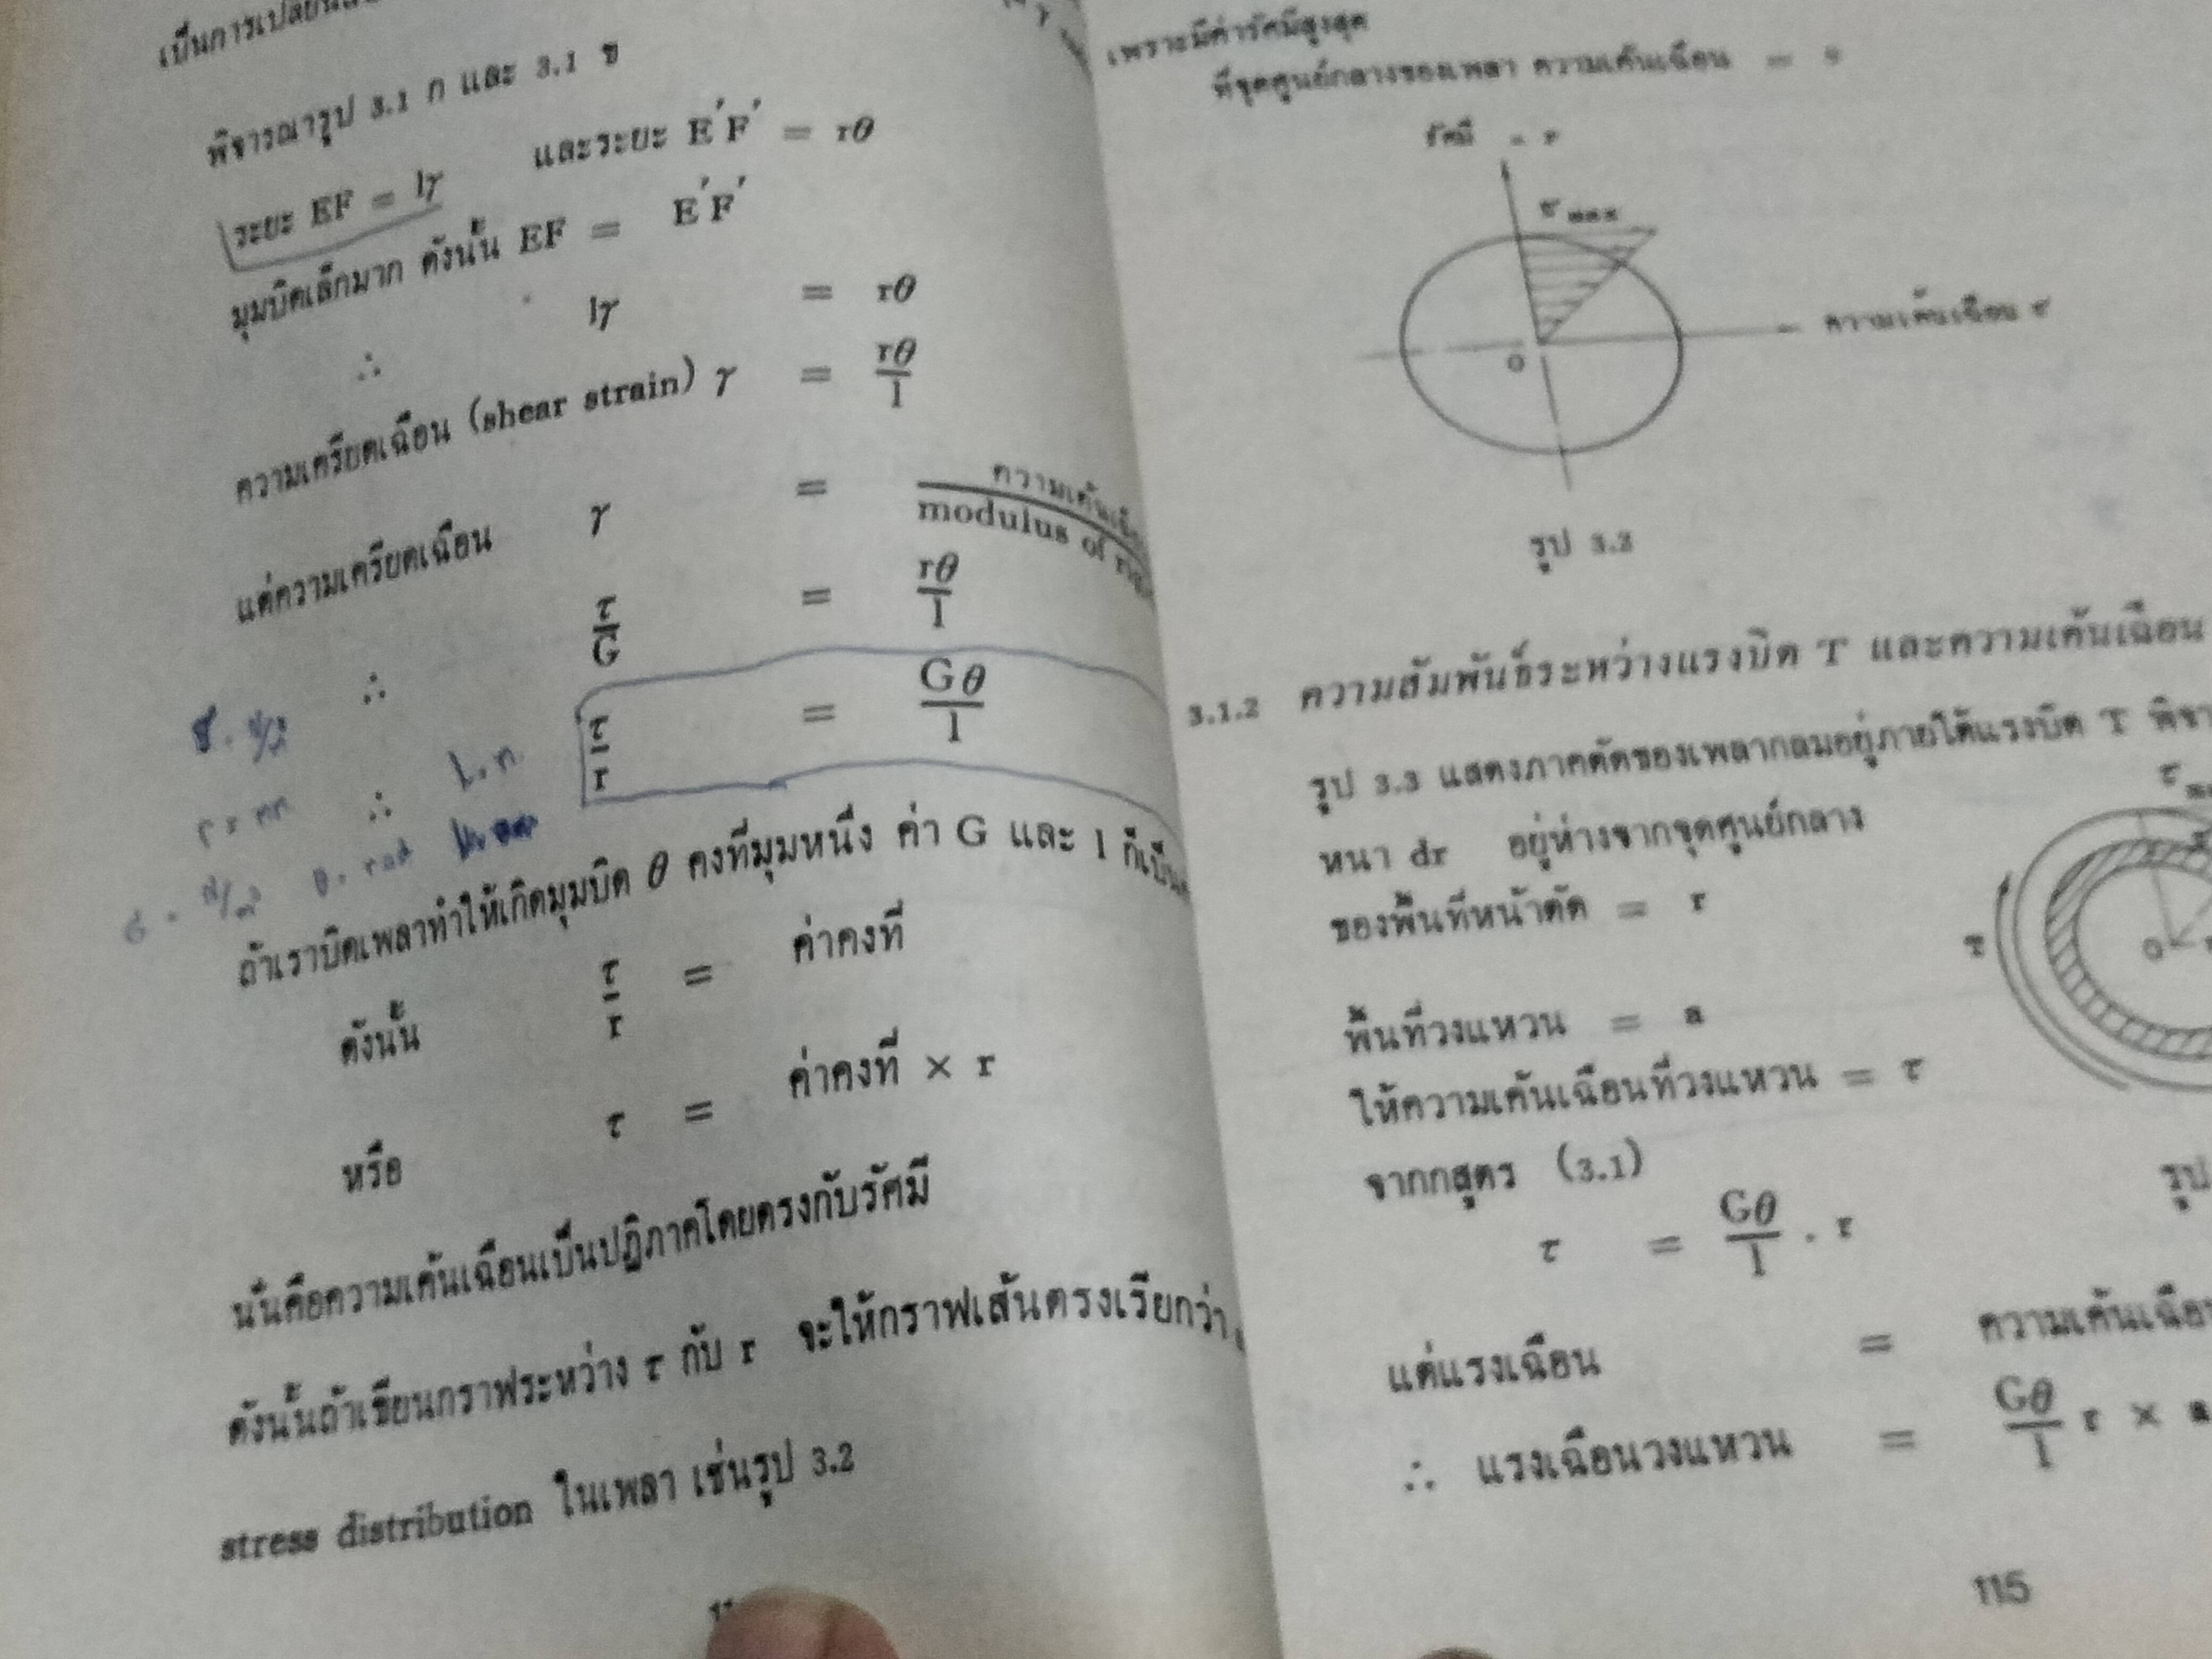 พิจารณารูป 3.1 ก และ 3.1 ข
ระยะ EF = lγ และระยะ E′F′ = rθ
มุมบิดเล็กมาก ดังนั้น EF = E′F′
∴ lγ = rθ
ความเครียดเฉือน (shear strain) γ = rθ/l
แต่ความเครียดเฉือน γ = ความเค้นเฉือน/modulus of
∴ τ/G = rθ/l
∴ τ/r = Gθ/l
ถ้าเราบิดเพลาทำให้เกิดมุมบิด θ คงที่มุมหนึ่ง ค่า G และ l ก็เป็น
ดังนั้น τ/r = ค่าคงที่
หรือ τ = ค่าคงที่ × r
นั่นคือความเค้นเฉือนเป็นปฏิภาคโดยตรงกับรัศมี
ดังนั้นถ้าเขียนกราฟระหว่าง τ กับ r จะให้กราฟเส้นตรงเรียกว่า
stress distribution ในเพลา เช่นรูป 3.2
เพราะมีค่ารัศมีสูงสุด
ที่จุดศูนย์กลางของเพลา ความเค้นเฉือน =
รัศมี = r
τ max
ความเค้นเฉือน τ
O
รูป 3.2
3.1.2 ความสัมพันธ์ระหว่างแรงบิด T และความเค้นเฉือน
รูป 3.3 แสดงภาคตัดของเพลากลมอยู่ภายใต้แรงบิด T
หนา dr อยู่ห่างจากจุดศูนย์กลาง
ของพื้นที่หน้าตัด = r
T
O
พื้นที่วงแหวน = a
ให้ความเค้นเฉือนที่วงแหวน = τ
จากกสูตร (3.1)
รูป
τ = Gθ/l . r
แต่แรงเฉือน = ความเค้นเฉือน
∴ แรงเฉือนวงแหวน = Gθ/l r × a
115